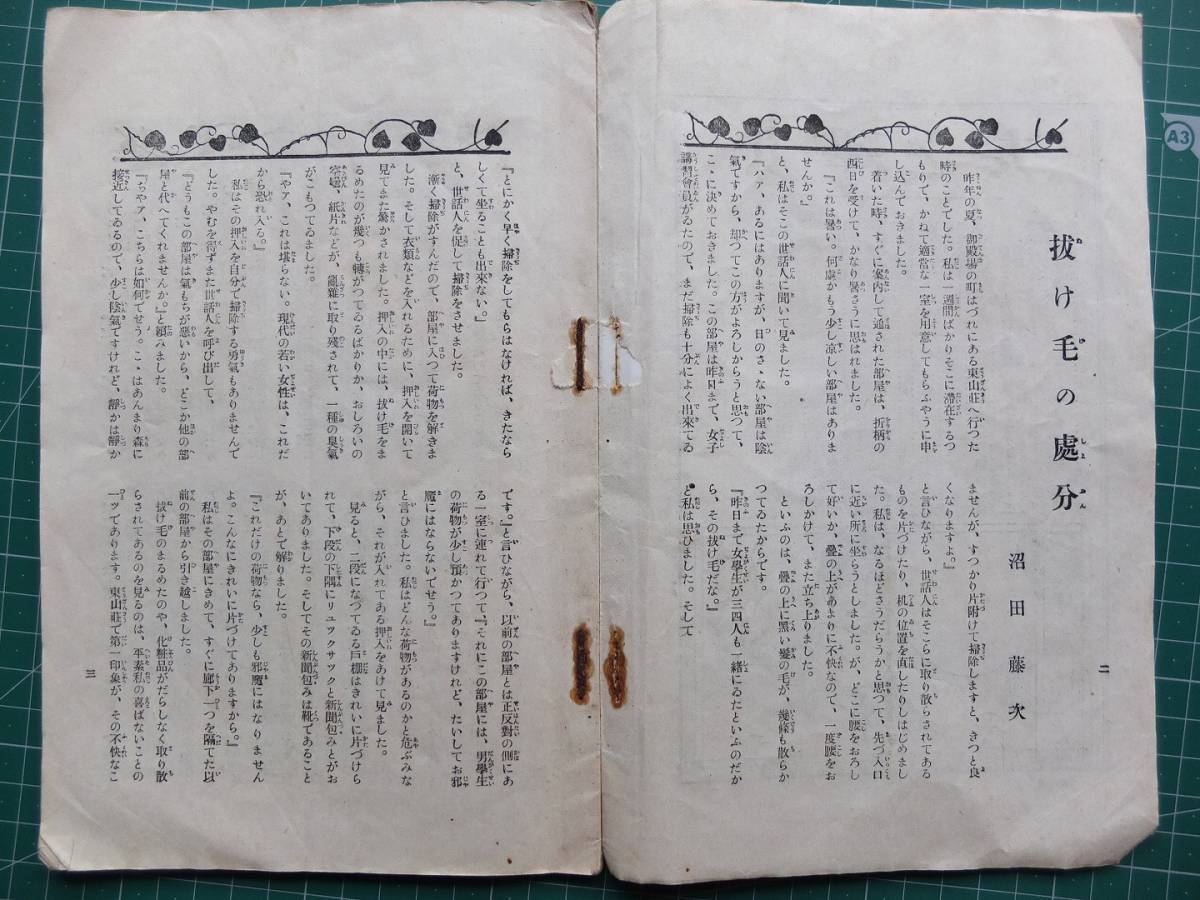 拔け毛の處分
沼田藤次
昨年の夏、御殿場の町はづれにある東山莊へ行つた
時のことでした。私は一週間ばかりそこに滯在するつ
もりで、かねて適當な一室を用意してもらふやうに申
し込んでおきました。
着いた時、すぐに案内して通された部屋は、折柄の
西日を受けて、かなり暑さうに思はれました。
『これは暑い。何處かもう少し涼しい部屋はありま
せんか。』
と、私はそこの世話人に聞いて見ました。
『ハァ、あるにはありますが、日のさゝない部屋は陰
氣ですから、却つてこの方がよろしからうと思つて、
こゝに決めておきました。この部屋は昨日まで、女子
講習會員がゐたので、まだ掃除も十分によく出來てゐ
ませんが、すつかり片附けて掃除しますと、きつと良
くなりますよ。』
と言ひながら、世話人はそこらに取り散らされてある
ものを片づけたり、机の位置を直したりしはじめまし
た。私は、なるほどさうだらうかと思つて、先づ入口
に近い所に坐らうとしました。が、どこに腰をおろし
て好いか、疊の上があまりに不快なので、一度腰をお
ろしかけて、また立ち上りました。
といふのは、疊の上に黑い髮の毛が、幾條も散らか
つてゐたからです。
『昨日まで女學生が三四人も一緖にゐたといふのだか
ら、その拔け毛だな。』
と私は思ひました。そして
二
『とにかく早く掃除をしてもらはなければ、きたなら
しくて坐ることも出來ない。』
と、世話人を促して掃除をさせました。
漸く掃除がすんだので、部屋に入つて荷物を解きま
した。そして衣類などを入れるために、押入を開いて
見てまた驚かされました。押入の中には、拔け毛をま
るめたのが幾つも轉がつてゐるばかりか、おしろいの
空壜、紙片などが、亂雜に取り殘されて、一種の臭氣
がこもつてゐました。
『やァ、これは堪らない。現代の若い女性は、これだ
から恐れ入る。』
私はその押入を自分で掃除する勇氣もありませんで
した。やむを得ずまた世話人を呼び出して、
『どうもこの部屋は氣もちが惡いから、どこか他の部
屋と代へてくれませんか。』と賴みました。
『ぢやァ、こちらは如何でせう。こゝはあんまり森に
接近してゐるので、少し陰氣ですけれど、靜かは靜か
です。』と言ひながら、以前の部屋とは正反對の側にあ
る一室に連れて行つて『それにこの部屋には、男學生
の荷物が少し預かつてありますけれど、たいしてお邪
魔にはならないでせう。』
と言ひました。私はどんな荷物があるのかと危ぶみな
がら、それが入れてある押入をあけて見ました。
見ると、二段になつてゐる戶棚はきれいに片づけら
れて、下段の下隅にリュックサックと新聞包みとがお
いてありました。そしてその新聞包みは靴であること
が、あとで解りました。
『これだけの荷物なら、少しも邪魔にはなりません
よ。こんなにきれいに片づけてありますから。』
私はその部屋にきめて、すぐに廊下一つを隔てた以
前の部屋から引き越しました。
拔け毛のまるめたのや、化粧品がだらしなく取り散
らされてあるのを見るのは、平素私の喜ばないことの
一ツであります。東山莊で第一印象が、その不快なこ
三
A3